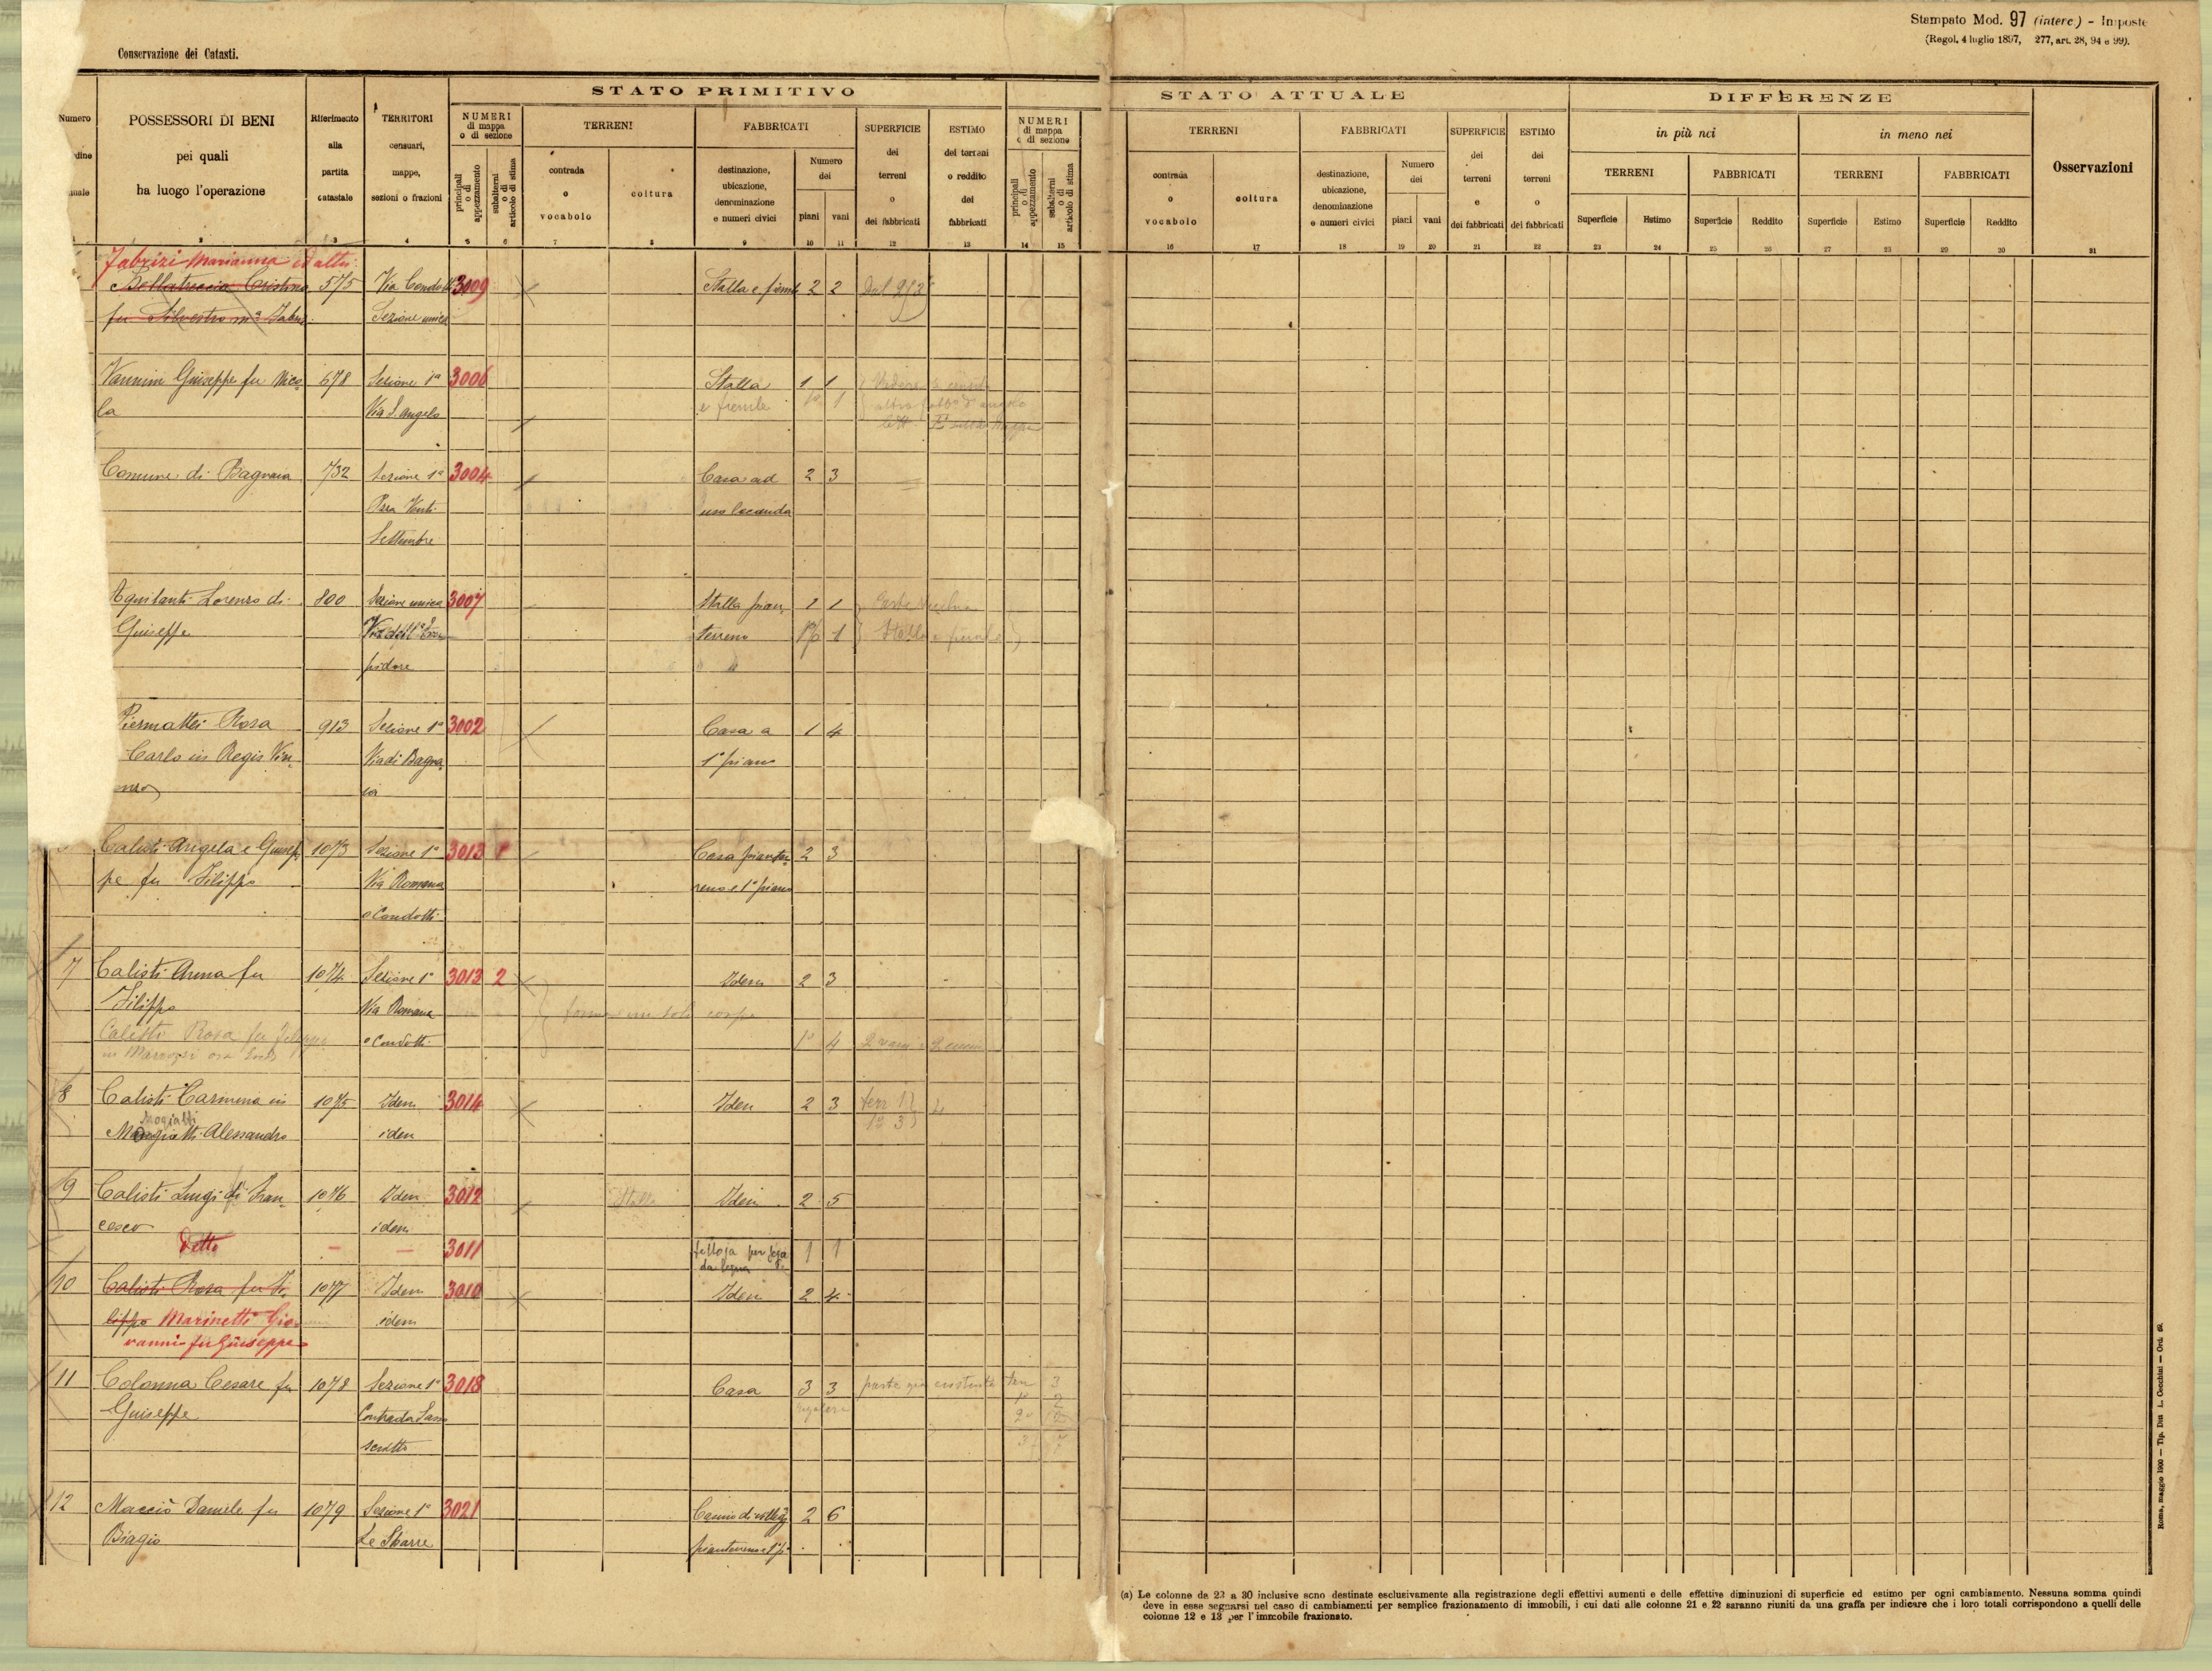 Stampato Mod. 97 (interc.) - Imposte
(Regol. 4 luglio 1897, 277, art. 28, 94 e 99).
Conservazione dei Catasti.
STATO PRIMITIVO
STATO ATTUALE
DIFFERENZE
Numero
POSSESSORI DI BENI
pei quali
ha luogo l'operazione
Riferimento
alla
partita
catastale
TERRITORI
censuari,
mappe,
sezioni o frazioni
NUMERI
di mappa
o di sezione
principali
o di
appezzamento
subalterni
o di
articolo di stima
TERRENI
contrada
o
vocabolo
coltura
FABBRICATI
destinazione,
ubicazione,
denominazione
e numeri civici
Numero
dei
piani vani
SUPERFICIE
dei
terreni
o
dei fabbricati
ESTIMO
dei terreni
o reddito
dei
fabbricati
NUMERI
di mappa
o di sezione
principali
o di
appezzamento
subalterni
o di
articolo di stima
TERRENI
contrada
o
vocabolo
coltura
FABBRICATI
destinazione,
ubicazione,
denominazione
e numeri civici
Numero
dei
piani vani
SUPERFICIE
dei
terreni
e
dei fabbricati
ESTIMO
dei
terreni
o
dei fabbricati
in più nei
in meno nei
TERRENI FABBRICATI TERRENI FABBRICATI
Superficie Estimo Superficie Reddito Superficie Estimo Superficie Reddito
Osservazioni
2 3 4 5 6 7 8 9 10 11 12 13 14 15 16 17 18 19 20 21 22 23 24 25 26 27 28 29 30 31
Fabrizi Marianna ed altri
Cristina 575 Via Condotti 3009 Stalla e fienile 2 2
fu Silvestro Sezione unica
Vannini Giuseppe fu Nico 678 Sezione 1ª 3006 Stalla 1 1
la Via S. Angelo e fienile 1º 1
Comune di Bagnaia 732 Sezione 1ª 3004 Casa ad 2 3
Pzza Venti uso locanda
Settembre
Aquilanti Lorenzo di 800 Sezione unica 3007 Stalla pian 1 1
Giuseppe terreno 1
pidore
Piermattei Rosa 913 Sezione 1ª 3002 Casa a 1 4
Carlo in Regis Vin Via di Bagna 1º piano
ia
Calisti Angela e Giusep 1073 Sezione 1ª 3013 1 Casa pianter 2 3
pe fu Filippo Via Romana reno e 1º piano
e Condotti
7 Calisti Anna fu 1074 Sezione 1ª 3013 2 Idem 2 3
Filippo Via Romana
Calisti Rosa fu Filippo e Condotti 1º 4 2 vani
8 Calisti Carmina in 1075 Idem 3014 Idem 2 3
Alessandro idem
9 Calisti Luigi di Fran 1076 Idem 3012 Stalla Idem 2 5
cesco idem
Detto — — 3011 tettoja per 1 1
da legna
10 Calisti Rosa fu Fi 1077 Idem 3010 Idem 2 4
lippo Marinetti Gio idem
vanni fu Giuseppe
11 Colonna Cesare fu 1078 Sezione 1ª 3018 Casa 3 3
Giuseppe Contrada Sasso
scritto
12 Macciò Daniele fu 1079 Sezione 1ª 3021 2 6
Biagio Le Sbarre pianterreno e 1º p.
Roma, maggio 1900 — Tip. Ditta L. Cecchini — Ord. 69.
(a) Le colonne da 23 a 30 inclusive sono destinate esclusivamente alla registrazione degli effettivi aumenti e delle effettive diminuzioni di superficie ed estimo per ogni cambiamento. Nessuna somma quindi
deve in esse segnarsi nel caso di cambiamenti per semplice frazionamento di immobili, i cui dati alle colonne 21 e 22 saranno riuniti da una graffa per indicare che i loro totali corrispondono a quelli delle
colonne 12 e 13 per l'immobile frazionato.